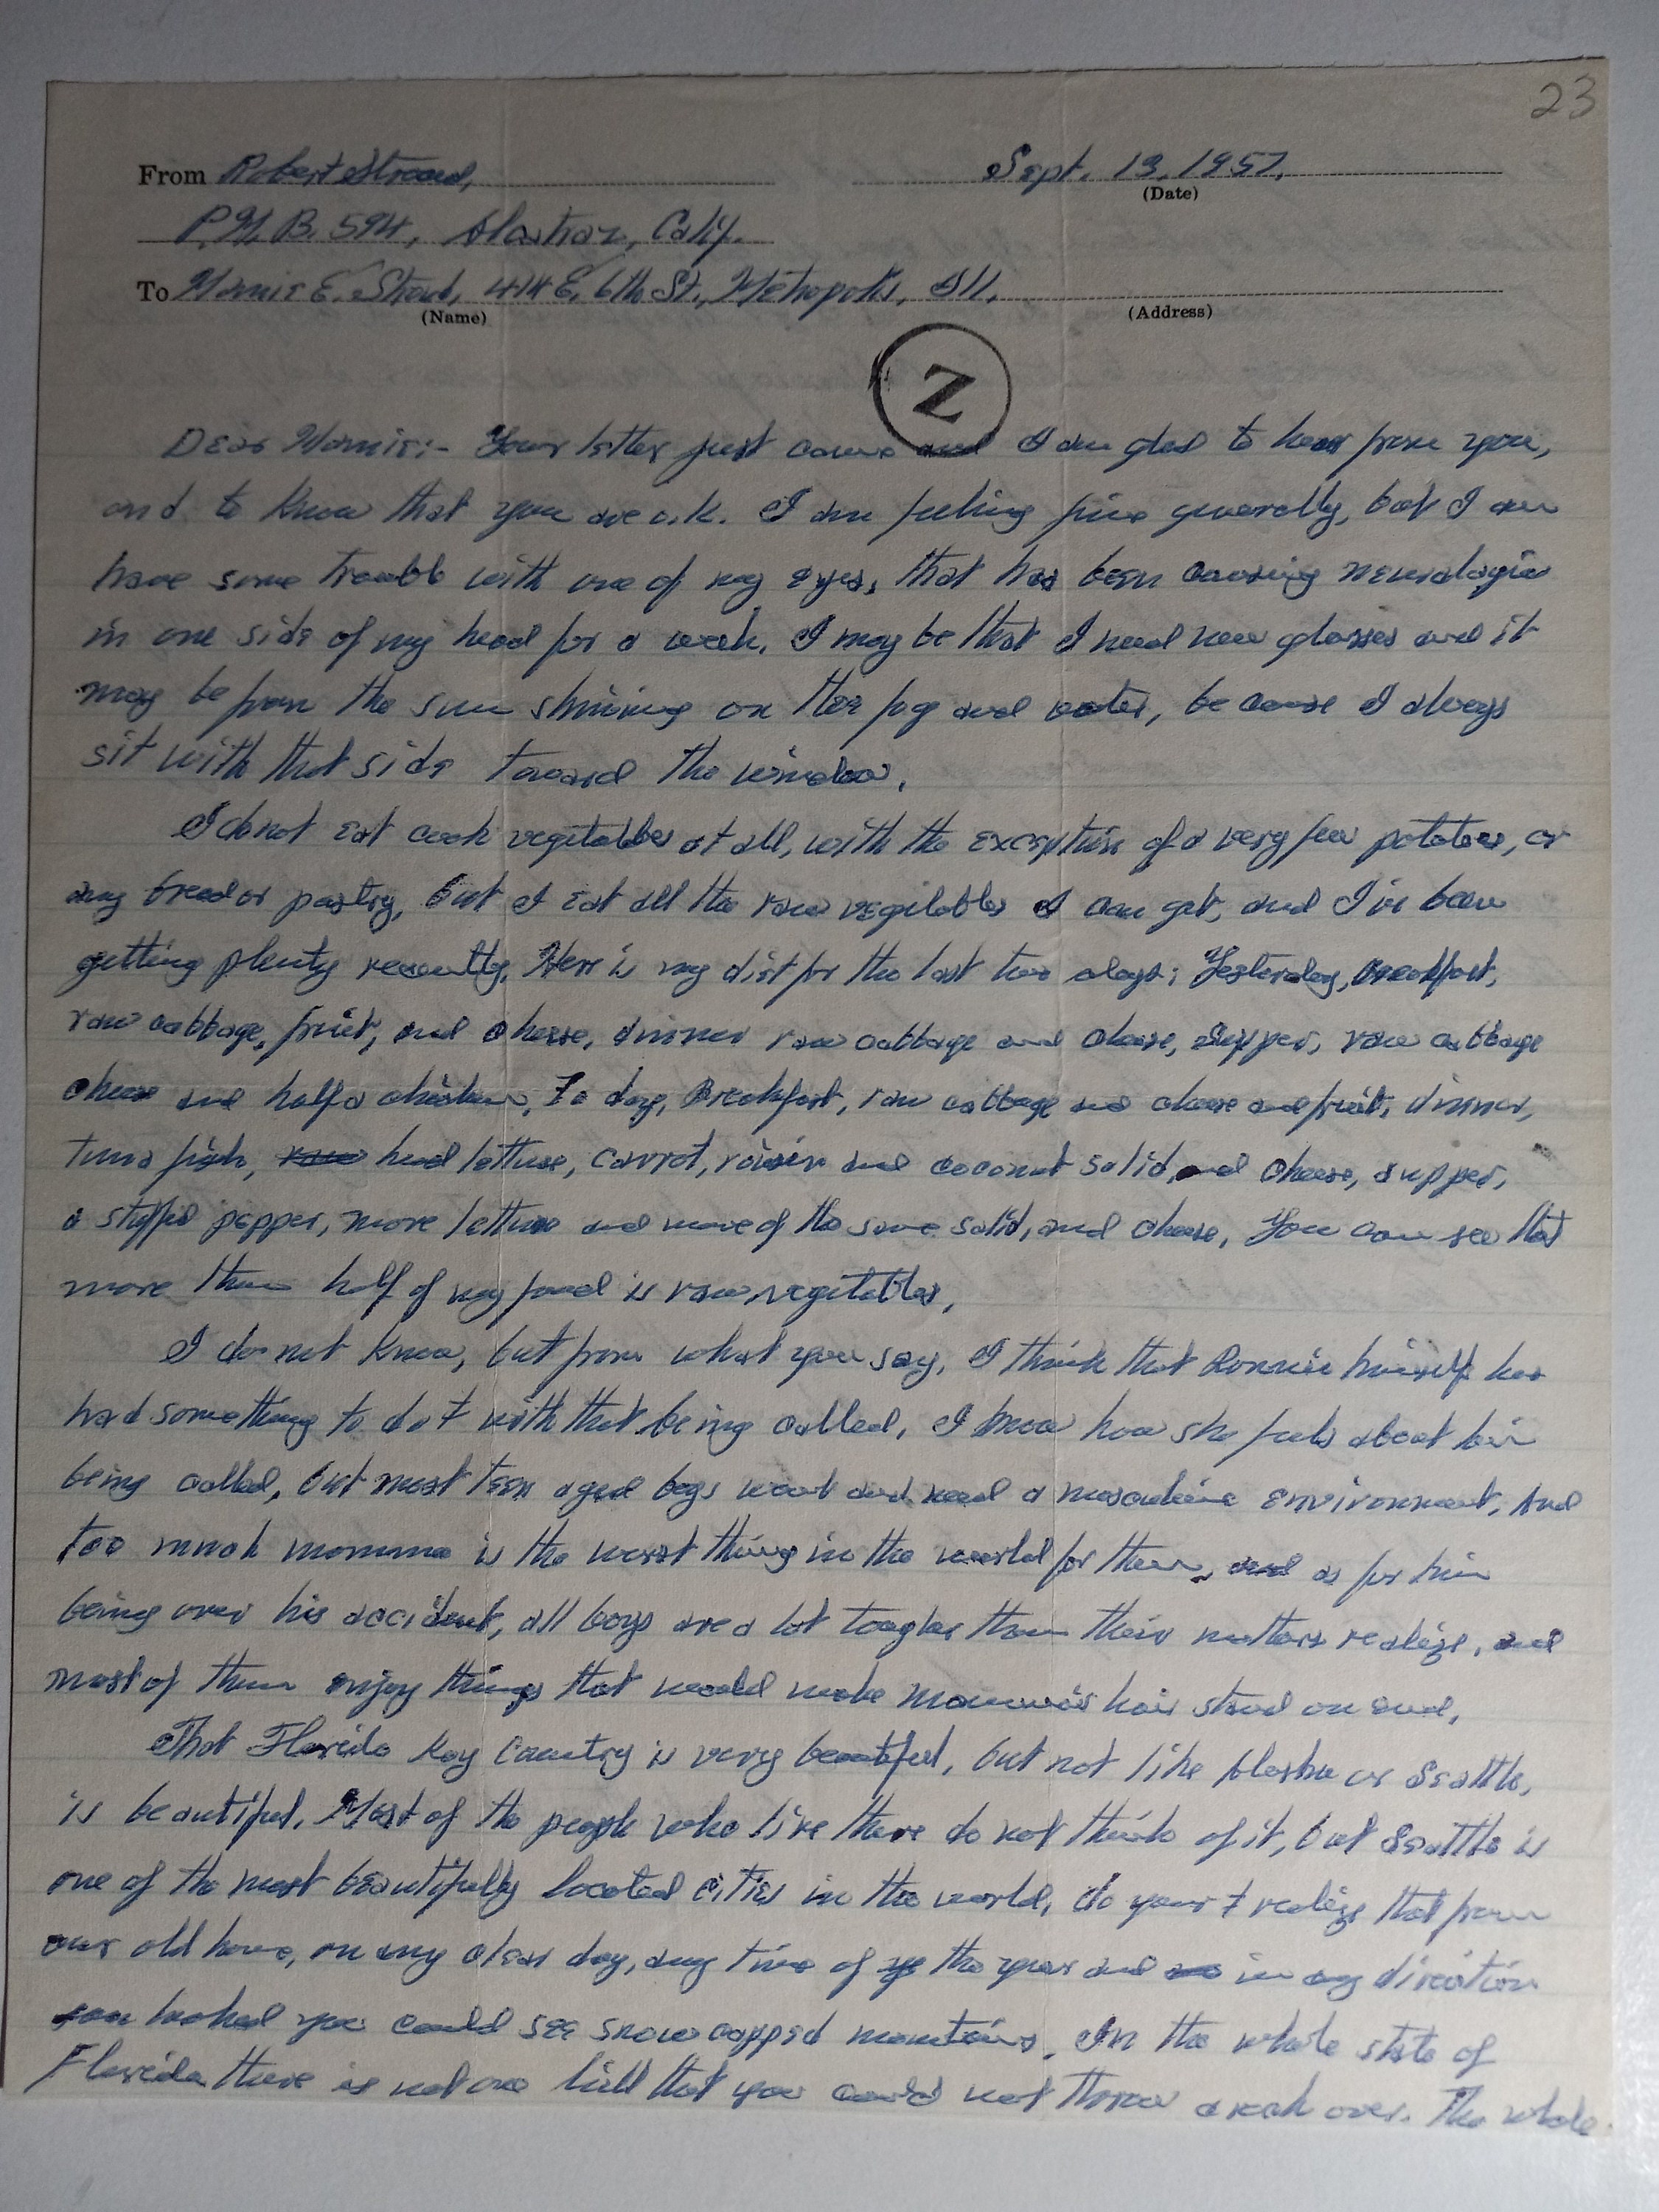 23
From Robert Stroud, Sept. 13, 1957.
(Date)
P.M.B. 594, Alcatraz, Calif.
To Mamie E. Stroud, 414 E. 6th St., Metropolis, Ill.
(Name) (Address)
Z
Dear Mamie:- Your letter just came and I am glad to hear from you,
and to know that you are o.k. I am feeling fine generally, but I am
have some troubb with one of my eyes, that has been causing neuralagia
in one side of my head for a week. I may be that I need new glasses and it
may be from the sun shining on the fog and water, because I always
sit with that side toward the window.
I do not eat cook vegetables at all, with the exception of a very few potatoes, or
any bread or pastry, but I eat all the raw vegitables I can get, and I've been
getting plenty recently. Here is my diet for the last two days; Yesterday, Breakfast,
raw cabbage, fruit, and cheese, dinner raw cabbage and cheese, supper, raw cabbage
cheese and half a chicken. To day, Breakfast, raw cabbage and cheese and fruit, dinner,
tuna fish, raw head lettuse, carrot, raisin and coconut salid, and cheese, supper,
a stuffed pepper, more lettuse and more of the same salid, and cheese. You can see that
more than half of my food is raw vegitables.
I do not know, but from what you say, I think that Ronnie himself has
had something to do with that being called. I know how she feels about him
being called, but most teen aged boys want and need a masculine environment. And
too much momma is the worst thing in the world for them, and as for him
being over his accident, all boys are a lot tougher than their mothers realize, and
most of them enjoy things that would make momma's hair stand on end.
That Florida Key Country is very beautiful, but not like Alaska or Seattle,
is beautiful. Most of the people who live there do not think of it, but Seattle is
one of the most beautifully located cities in the world, do you realize that from
our old home, on any clear day, any time of ye the year and in any direction
you looked you could see snow capped mountains. In the whole state of
Florida there is not one hill that you could not throw a rock over. The whole